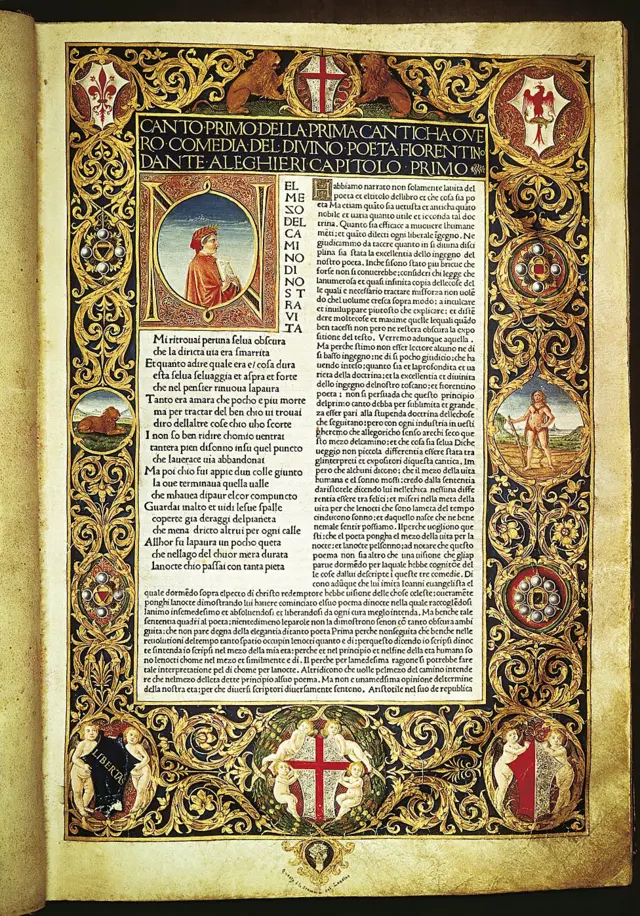 CANTO·PRIMO DELLA·PRIMA CANTICHA OVE
RO·COMEDIA·DEL DIVINO·POETA FIORENTINO
DANTE·ALEGHIERI CAPITOLO·PRIMO
EL
ME
ZO
DEL
CA
MI
NO
DI
NO
S T
RA
VI
TA
Mi ritrouai peruna selua obscura
che la diricta uia era smarrita
Et quanto adire quale era e/ cosa dura
esta selua seluaggia et aspra et forte
che nel pensier rinuoua lapaura
Tanto era amara che pocho e piu morte
ma per tractar del ben chio ui trouai
diro dellaltre cose chio uho scorte
I non so ben ridire chomio uentrai
tantera pien disonno insu quel puncto
che lauerace uia abbandonai
Ma poi chio fui appie dun colle giunto
la oue terminaua quella ualle
che mhauea dipaur el cor compuncto
Guardai inalto et uidi lesue spalle
coperte gia deraggi delpianeta
che mena dricto altrui per ogni calle
Allhor fu lapaura un pocho queta
che nellago del chuor mera durata
lanocte chio passai con tanta pieta
Habbiamo narrato non solamente lauita del
poeta et eltitolo dellibro et che cosa sia po
eta Ma etiam quato sia uetusta et anticha quato
nobile et uaria quanto utile et ioconda tal doc
trina. Quanto sia efficace a muouere lhumane
menti; et quato dilecti ogni liberale igegno. Ne
giudicammo da tacere quanto in si diuina disci
plina sia stata la excellentia dello ingegno del
nostro poeta. Inche sisono stato piu brieue che
forse non si conuerrebbe; consideri chi legge che
lanumerosa et quasi infinita copia dellecose del
le quali e necessario tractare misforza non uole
do chel uolume cresca sopra modo; a inculcare
et inuiluppare piutosto che explicare; et diste
dere moltecose et maxime quelle lequali quado
ben tacessi non pero ne restera obscura la expo
sitione del testo. Verremo adunque aquella.
Ma perche stimo non esser lectore alcuno ne di
si basso ingegno; ne di si pocho giudicio; che ha
uendo inteso; quanto sia et laprofondita et ua
rieta della doctrina; et la excellentia et diuinita
dello ingegno delnostro toscano; et fiorentino
poeta; non si persuada che questo principio
delprimo canto debba per sublimita et grande
za esser pari alla stupenda doctrina dellechose
che seguitano; pero con ogni industria in uesti
gheremo che allegoricho senso arechi seco que
sto mezo delcamino; et che cosa sia selua Diche
ueggio non piccola differentia essere stata tra
glinterpreti et expositori diquesta cantica. Im
pero che alchuni dicono; che il mezo della uita
humana e el sonno mossi; credo dalla sententia
daristotele dicendo lui nellethica nessuna diffe
rentia essere tra felici; et miseri nella meta della
uita per che lenocti che sono lameta del tempo
cinducono sonno; et daquello nasce che ne bene
nemale sentir possiamo. Ilperche uogliono que
sti; che el poeta pongha el mezo della uita per la
nocte; et lanocte pelsonno; ad notare che questo
poema non sia altro che una uisione che gliap
parue dormedo per laquale hebbe cognitioe del
le cose dallui descripte i queste tre comedie. Di
cono adunque che lui imita Ioanni euangelista el
quale dormedo sopra elpecto di christo redemptore hebbe uisione delle chose celeste; oueramete
ponghi lanocte dimostrando lui hauere cominciato elsuo poema dinocte nella quale raccogledosi
lanimo insemedesimo et absoluendosi et liberandosi da ogni cura meglo intenda. Ma benche tale
sententia quadri al poeta; nientedimeno leparole non la dimostrono senon co tanto obscura ambi
guita; che non pare degna della elegantia ditanto poeta Prima perche nonseguita che benche nelle
reuolutioni deltempo tanto spatio occupin lenocti quanto e di; perquesto dicendo io scripsi dinoc
te sintenda io scripsi nel mezo della mia eta; perche et nel principio et nelfine della eta humana so
no lenocti chome nel mezo et similmente e di. Il perche per lamedesima ragione si potrebbe fare
tale interpretatione pel di chome per lanocte. Altri dicono che uolle pelmezo del camino intende
re che nelmezo delleta dette principio alsuo poema. Ma non e unamedesima opinione determine
della nostra eta; per che diuersi scriptori diuersamente sentono. Aristotile nel suo de republica
LIBERTAS